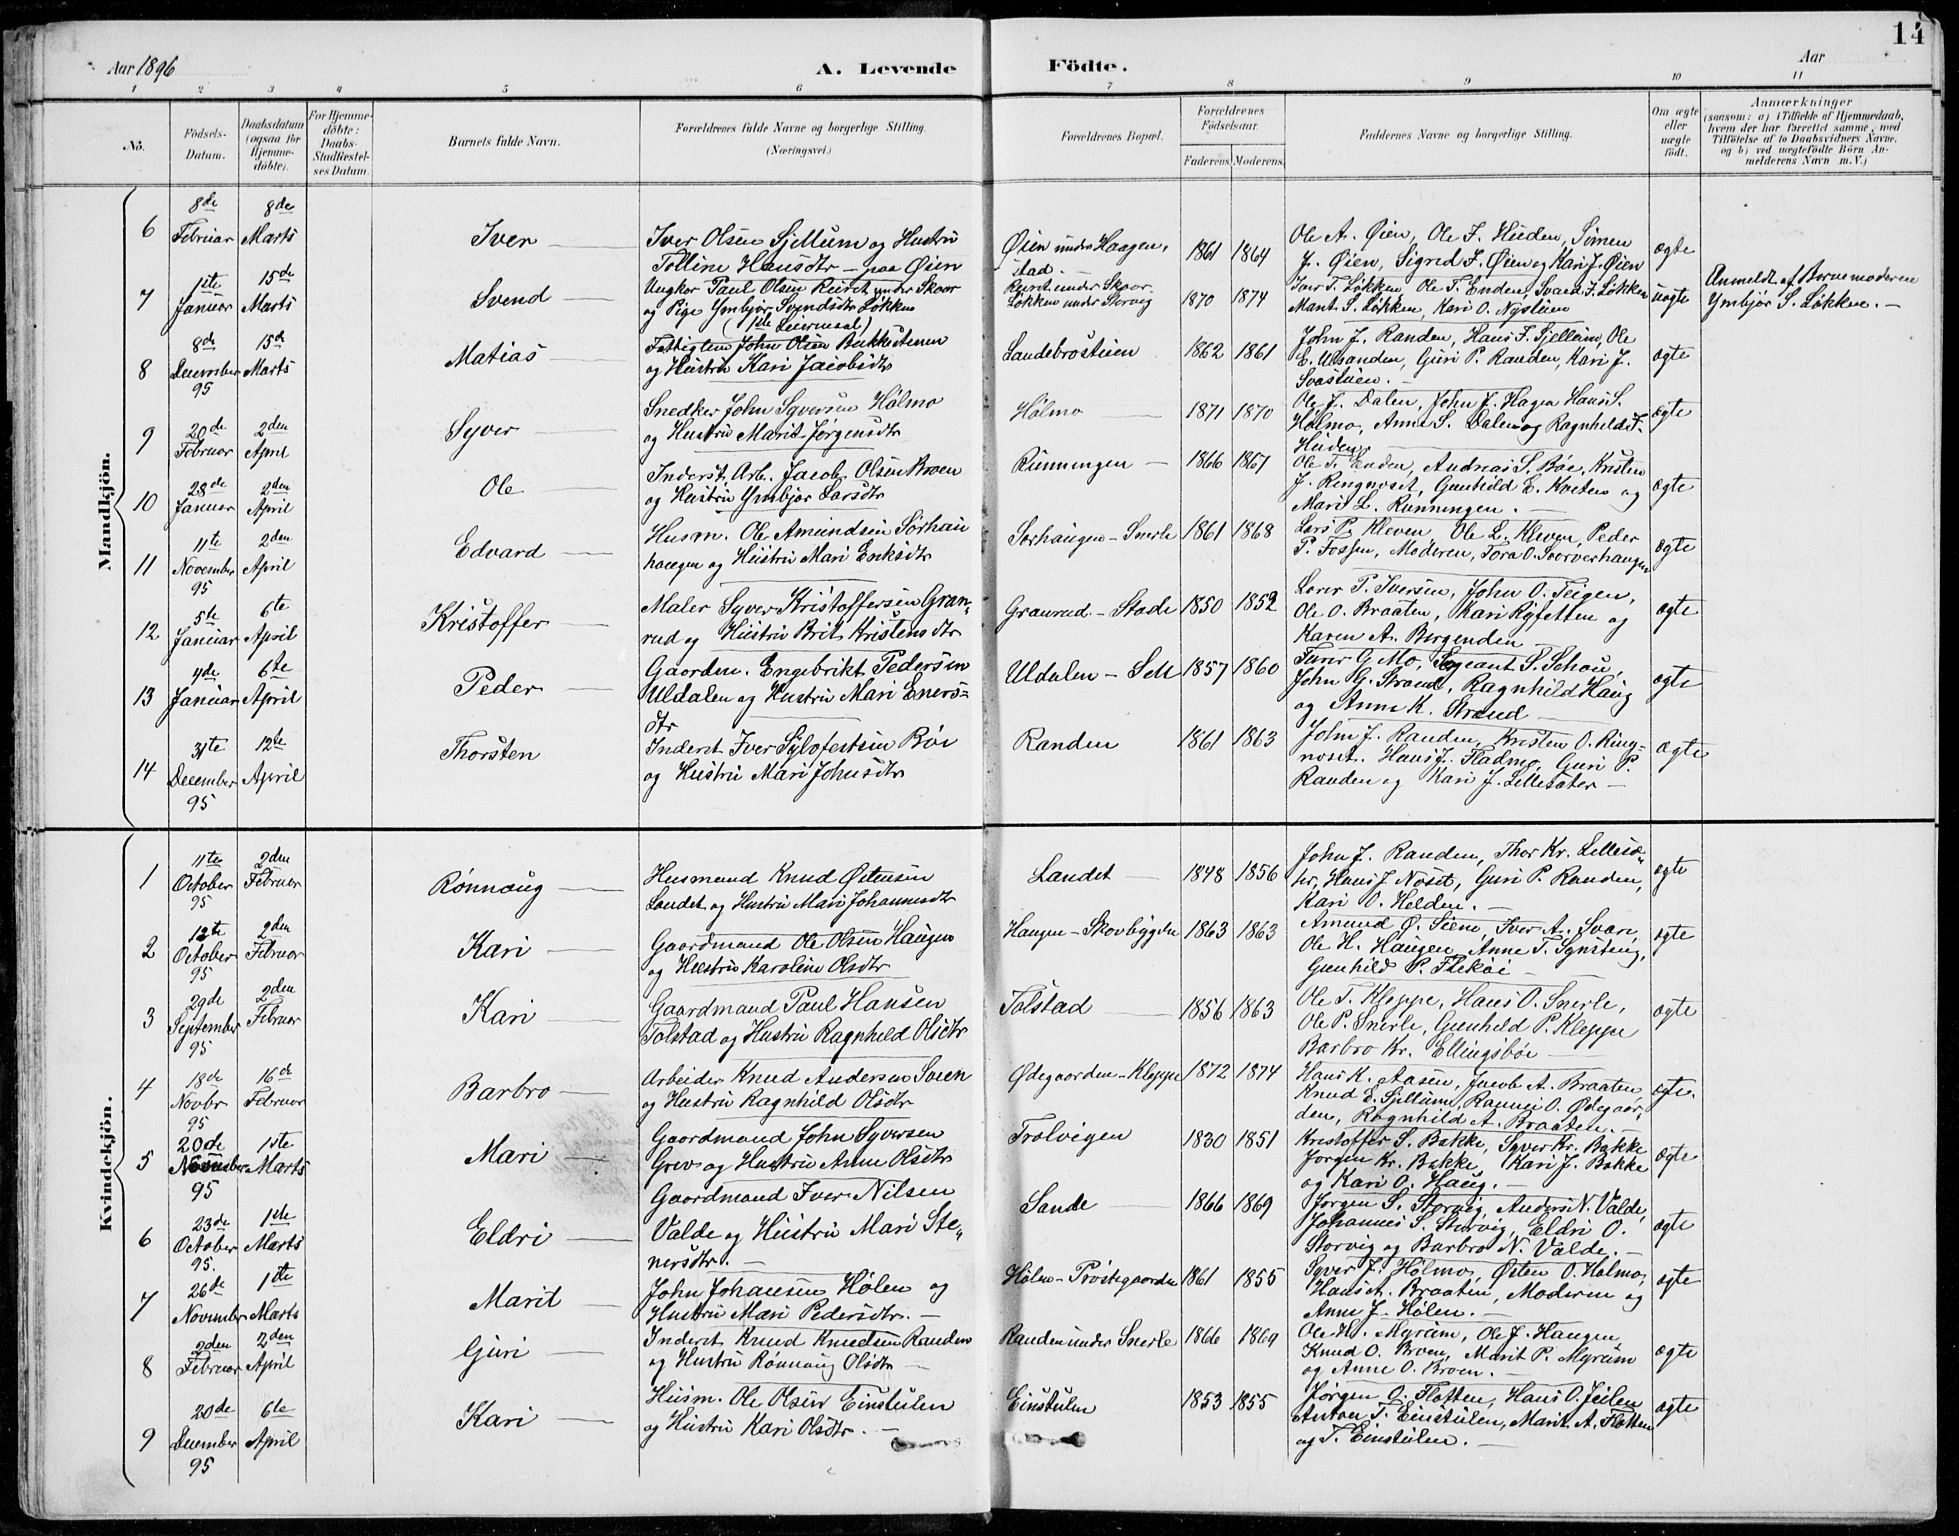 14
Aar 1896
A. Levende Födte.
Aar
1 2 3 4 5 6 7 8 9 10 11
No.
Födsels-Datum.
Daabsdatum (ogsaa för Hjemmedöbte).
For Hjemmedöbte: Daabs-Stadfæstelses Datum.
Barnets fulde Navn.
Forældrenes fulde Navne og borgerlige Stilling. (Næringsvei.)
Forældrenes Bopæl.
Forældrenes Födselsaar.
Faderens. Moderens.
Faddernes Navne og borgerlige Stilling.
Om ægte eller uægte födt.
Anmærkninger
(saasom: a) i Tilfælde af Hjemmedaab,
hvem der har forrettet samme, med
Tilföielse af to Daabsvidners Navne,
og b) ved uægtefödte Börn An-
melderens Navn m. V.)
Mandkjön.
6 8de Februar 8de Marts Iver
Iver Olsen Sjellum og Hustru
Tolline Hansdtr – paa Øien
Øien under Haagen-
stad
1861 1864
Ole A. Øien, Ole F. Heiden, Simen
J. Øien, Sigrid J. Øien og Kari J. Øien
ægte
7 1ste Januar 15de Marts Svend
Ungkar Paul Olsen Ruset under Skaar
og Pige Ymbjør Svendsdtr Løkken
(1ste Leiermaal)
Ruset under Skaar
Løkken under Storvig
1870 1874
Iver T. Løkken Ole T. Enden, Svend I. Løkken
Marit S. Løkken, Kari O. Nystuen
uægte
Anmeldt af Barnemoderen
Ymbjør S. Løkken. –
8 8de December 95 15de Marts Matias
Fattiglem John Olsen Bakkestuen
og Hustru Kari Jacobsdtr
Sandebrostuen
1862 1861
John J. Randen, Hans F. Sjellum, Ole
E. Ulsanden, Guri P. Randen, Kari J.
Svastuen. –
ægte
9 20de Februar 2den April Syver
Snedker John Syversen Holmo
og Hustru Marit Jørgensdtr
Holmo
1871 1870
Ole J. Dalen, John J. Hagen Hans S.
Holmo, Anne S. Dalen og Ragnhild F.
Heiden
ægte
10 28de Januar 2den April Ole
Inderst, Arb. Jacob Olsen Broen
og Hustru Ymbjør Larsdtr
Runningen
1866 1867
Ole T. Enden, Andreas S. Bøe, Kristen
J. Ringnoset, Gunhild E. Kveten og
Marit L. Runningen. –
ægte
11 11te November 95 2den April Edvard
Husm. Ole Amundsen Sorhau
haugen og Hustru Mari Eriksdtr
Sorhaugen – Snerle
1861 1868
Lars P. Kleven Ole L. Kleven, Peder
P. Fossen, Moderen, Tora O. Sorverhaugen
ægte
12 5te Januar 6te April Kristoffer
Maler Syver Kristoffersen Gran-
rud og Hustru Brit Kristensdtr
Granrud – Stade
1850 1852
Lærer P. Iversen, John O. Teigen,
Ole O. Braaten, Kari Ryfetten og
Karen A. Borgenden
ægte
13 4de Januar 6te April Peder
Gaardm. Engebrikt Pedersen
Uldalen og Hustru Mari Eners-
dtr
Uldalen – Sell
1857 1860
Turer G. Mo, Sergeant S. Schou,
John G. Strand, Ragnhild Haug
og Anne K. Strand
ægte
14 31te December 95 12te April Thorsten
Inderst Iver Sylfestsen Bøe
og Hustru Mari Johnsdtr
Randen
1861 1863
John J. Randen, Kristen O. Ring-
noset. Hans J. Fladmo, Guri P.
Randen og Kari J. Lillesæter –
ægte
Kvindekjön.
1 11te October 95 2den Februar Rønnaug
Husmand Knud Østensen
Landet og Hustru Mari Johannesdtr
Landet
1848 1856
John J. Randen, Thor Kr. Lillesæ-
ter, Hans J. Noset, Guri P. Randen,
Kari O. Helden. –
ægte
2 12te October 95 2den Februar Kari
Gaardmand Ole Olsen Haugen
og Hustru Karoline Olsdtr
Haugen – Skovbygden
1863 1863
Amund Ø. Siem, Iver A. Svare,
Ole H. Haugen, Anne T. Synsteng,
Gunhild P. Flekøi –
ægte
3 29de September 95 2den Februar Kari
Gaardmand Paul Hansen
Tolstad og Hustru Ragnhild Olsdtr
Tolstad
1856 1863
Ole T. Kleppe, Hans O. Snerle,
Ole P. Snerle, Gunhild P. Kleppe
Barbro Kr. Ellingsbøe
ægte
4 18de Novbr 95 16de Februar Barbro
Arbeider Knud Andersen Svien
og Hustru Ragnhild Olsdtr
Ødegaarden – Kleppe
1872 1874
Hans K. Aasen, Jacob A. Braaten,
Knud E. Sjellum, Rannei O. Ødegaar-
den, Ragnhild A. Braaten. –
ægte.
5 20de November 95 1ste Marts Mari
Gaardmand John Syversen
Grev og Hustru Anne Olsdtr
Trolvigen
1830 1851
Kristoffer S. Bakke, Syver Kr. Bakke
Jørgen Kr. Bakke, Kari J. Bakke
og Kari O. Haug. –
ægte
6 23de October 95. 1ste Marts Eldri
Gaardmand Iver Nilsen
Valde og Hustru Mari Ste-
nersdtr. –
Sande
1866 1869
Jørgen S. Storvig, Anders N. Valde,
Johannes S. Storvig, Eldri O.
Storvig og Barbro N. Valde. –
ægte
7 26de November 1ste Marts Marit
John Johansen Hølen og
Hustru Mari Pedersdtr. –
Hølen – Præstegaarden
1861 1855
Syver J. Holmo, Østen O. Holmo,
Hans A. Braaten, Moderen og
Anne J. Hølen. –
ægte
8 2den Februar 2den April Guri
Inderst Knud Knudsen Randen
og Hustru Rønnaug Olsdtr –
Randen under Snerle
1866 1869
Ole H. Myrum, Ole J. Haugen
Knud O. Broen, Marit P. Myrum
og Anne O. Broen. –
ægte
9 20de December 95 6te April Kari
Husm. Ole Olsen Einstulen
og Hustru Kari Olsdtr. –
Einstulen
1853 1855
Jørgen O. Flatten, Hans O. Jeilen
Anton T. Einstulen, Marit A. Flatten
og T. Einstulen. –
ægte